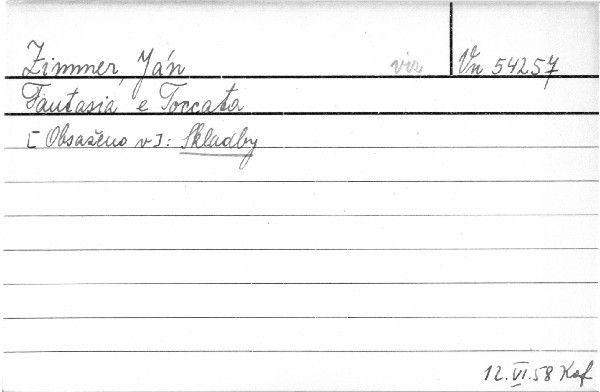 Zimmer, Ján viz Vn 54257
Fantasia e Toccata
[Obsaženo v]: Skladby
12.VI.58 Kof